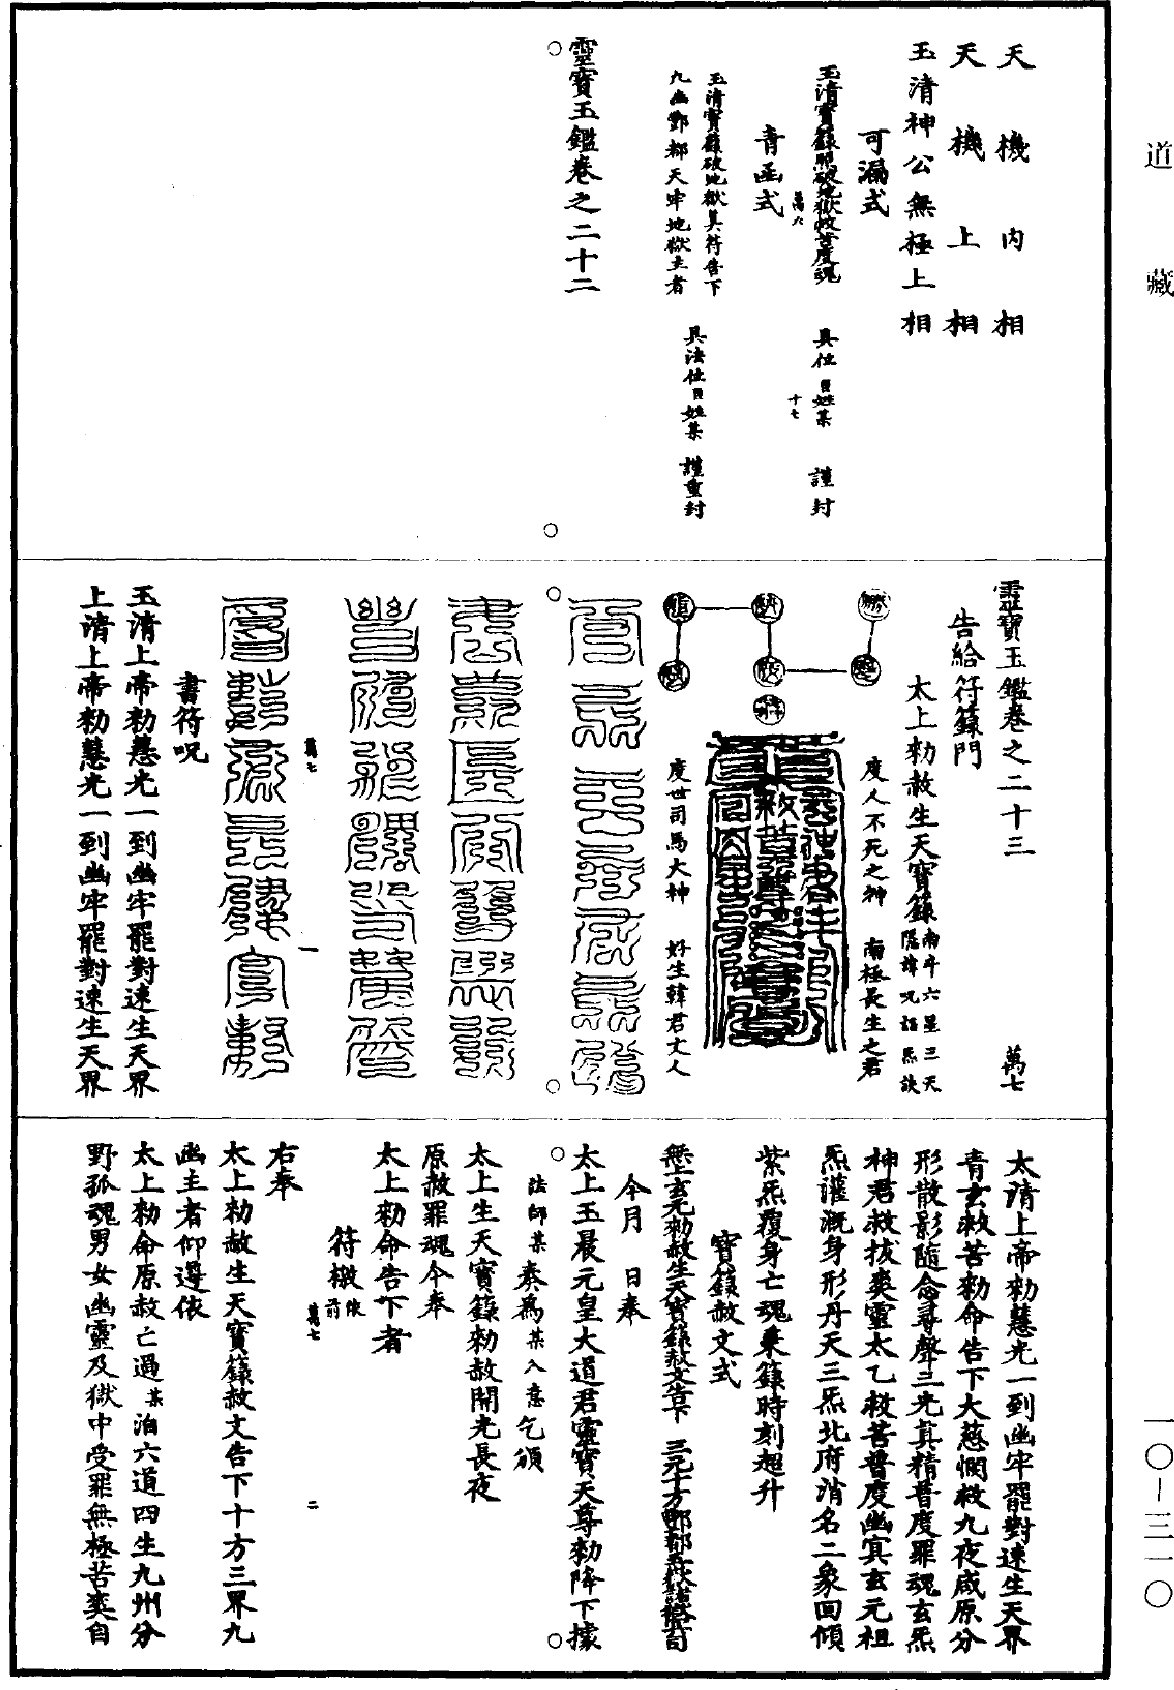 道藏
天機內相
天機上相
玉清神公無極上相
可漏式
玉清寶籙照破地獄救苦度魂　具位臣姓某　謹封
萬六　十七
青函式
玉清寶籙破地獄真符告下
九幽酆都天牢地獄主者
具法位臣姓某　謹重封
靈寶玉鑑卷之二十二
靈寶玉鑑卷之二十三　萬七
告給符籙門
太上勑赦生天寶籙南斗六星三天
隱諱呪語炁訣
度人不死之神　南極長生之君
度世司馬大神　好生韓君丈人
萬七　一
書符呪
玉清上帝勑慧光一到幽牢罷對速生天界
上清上帝勑慧光一到幽牢罷對速生天界
太清上帝勑慧光一到幽牢罷對速生天界
青玄救苦勑命告下大慈憫救九夜咸原分
形散影隨念尋聲三光真精普度罪魂玄炁
神君救拔爽靈太乙救苦普度幽冥玄元祖
炁灌溉身形丹天三炁北府消名二象回傾
紫炁覆身亡魂乘籙時刻超升
寶籙赦文式
無上玄元勑赦生天寶籙赦文告下　三元十方酆都嶽瀆諸司
今月　日奉
太上玉晨元皇大道君靈寶天尊勑降下據
法師某奏爲某入意乞頒
太上生天寶籙勑赦開光長夜
原赦罪魂今奉
太上勑命告下者
符檄依前
萬七　二
右奉
太上勑赦生天寶籙赦文告下十方三界九
幽主者仰遵依
太上勑命原赦亡過某洎六道四生九州分
野孤魂男女幽靈及獄中受罪無極苦爽自
一〇—三一〇